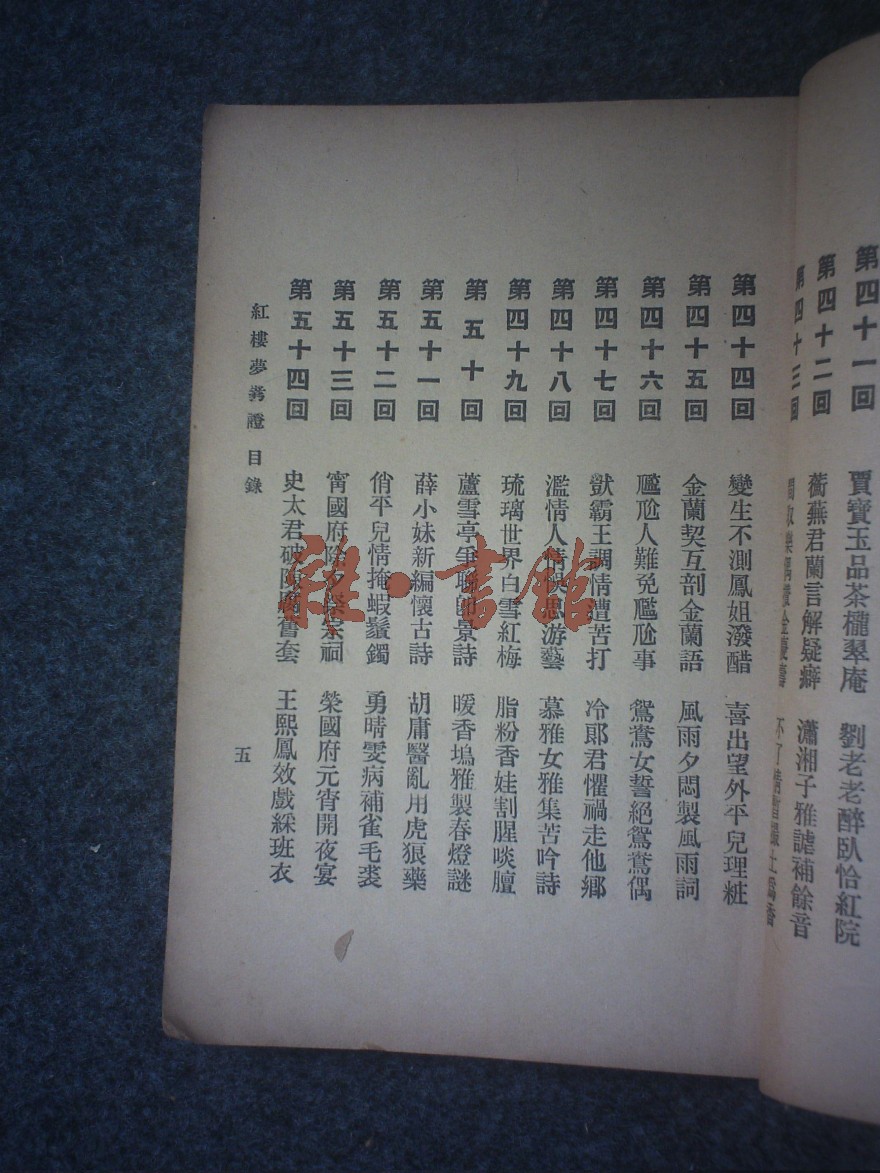 第四十一回 賈寶玉品茶櫳翠庵 劉老老醉臥怡紅院
第四十二回 蘅蕪君蘭言解疑癖 瀟湘子雅謔補餘音
第四十三回
第四十四回 變生不測鳳姐潑醋 喜出望外平兒理粧
第四十五回 金蘭契互剖金蘭語 風雨夕悶製風雨詞
第四十六回 尷尬人難免尷尬事 鴛鴦女誓絕鴛鴦偶
第四十七回 獃霸王調情遭苦打 冷郎君懼禍走他鄉
第四十八回 濫情人情悞思游藝 慕雅女雅集苦吟詩
第四十九回 琉璃世界白雪紅梅 脂粉香娃割腥啖膻
第五十回 蘆雪亭爭聯即景詩 暖香塢雅製春燈謎
第五十一回 薛小妹新編懷古詩 胡庸醫亂用虎狼藥
第五十二回 俏平兒情掩蝦鬚鐲 勇晴雯病補雀毛裘
第五十三回 甯國府除夕祭宗祠 榮國府元宵開夜宴
第五十四回 史太君破陳腐舊套 王熙鳳效戲綵班衣
紅樓夢考證 目錄
五
雜·書館